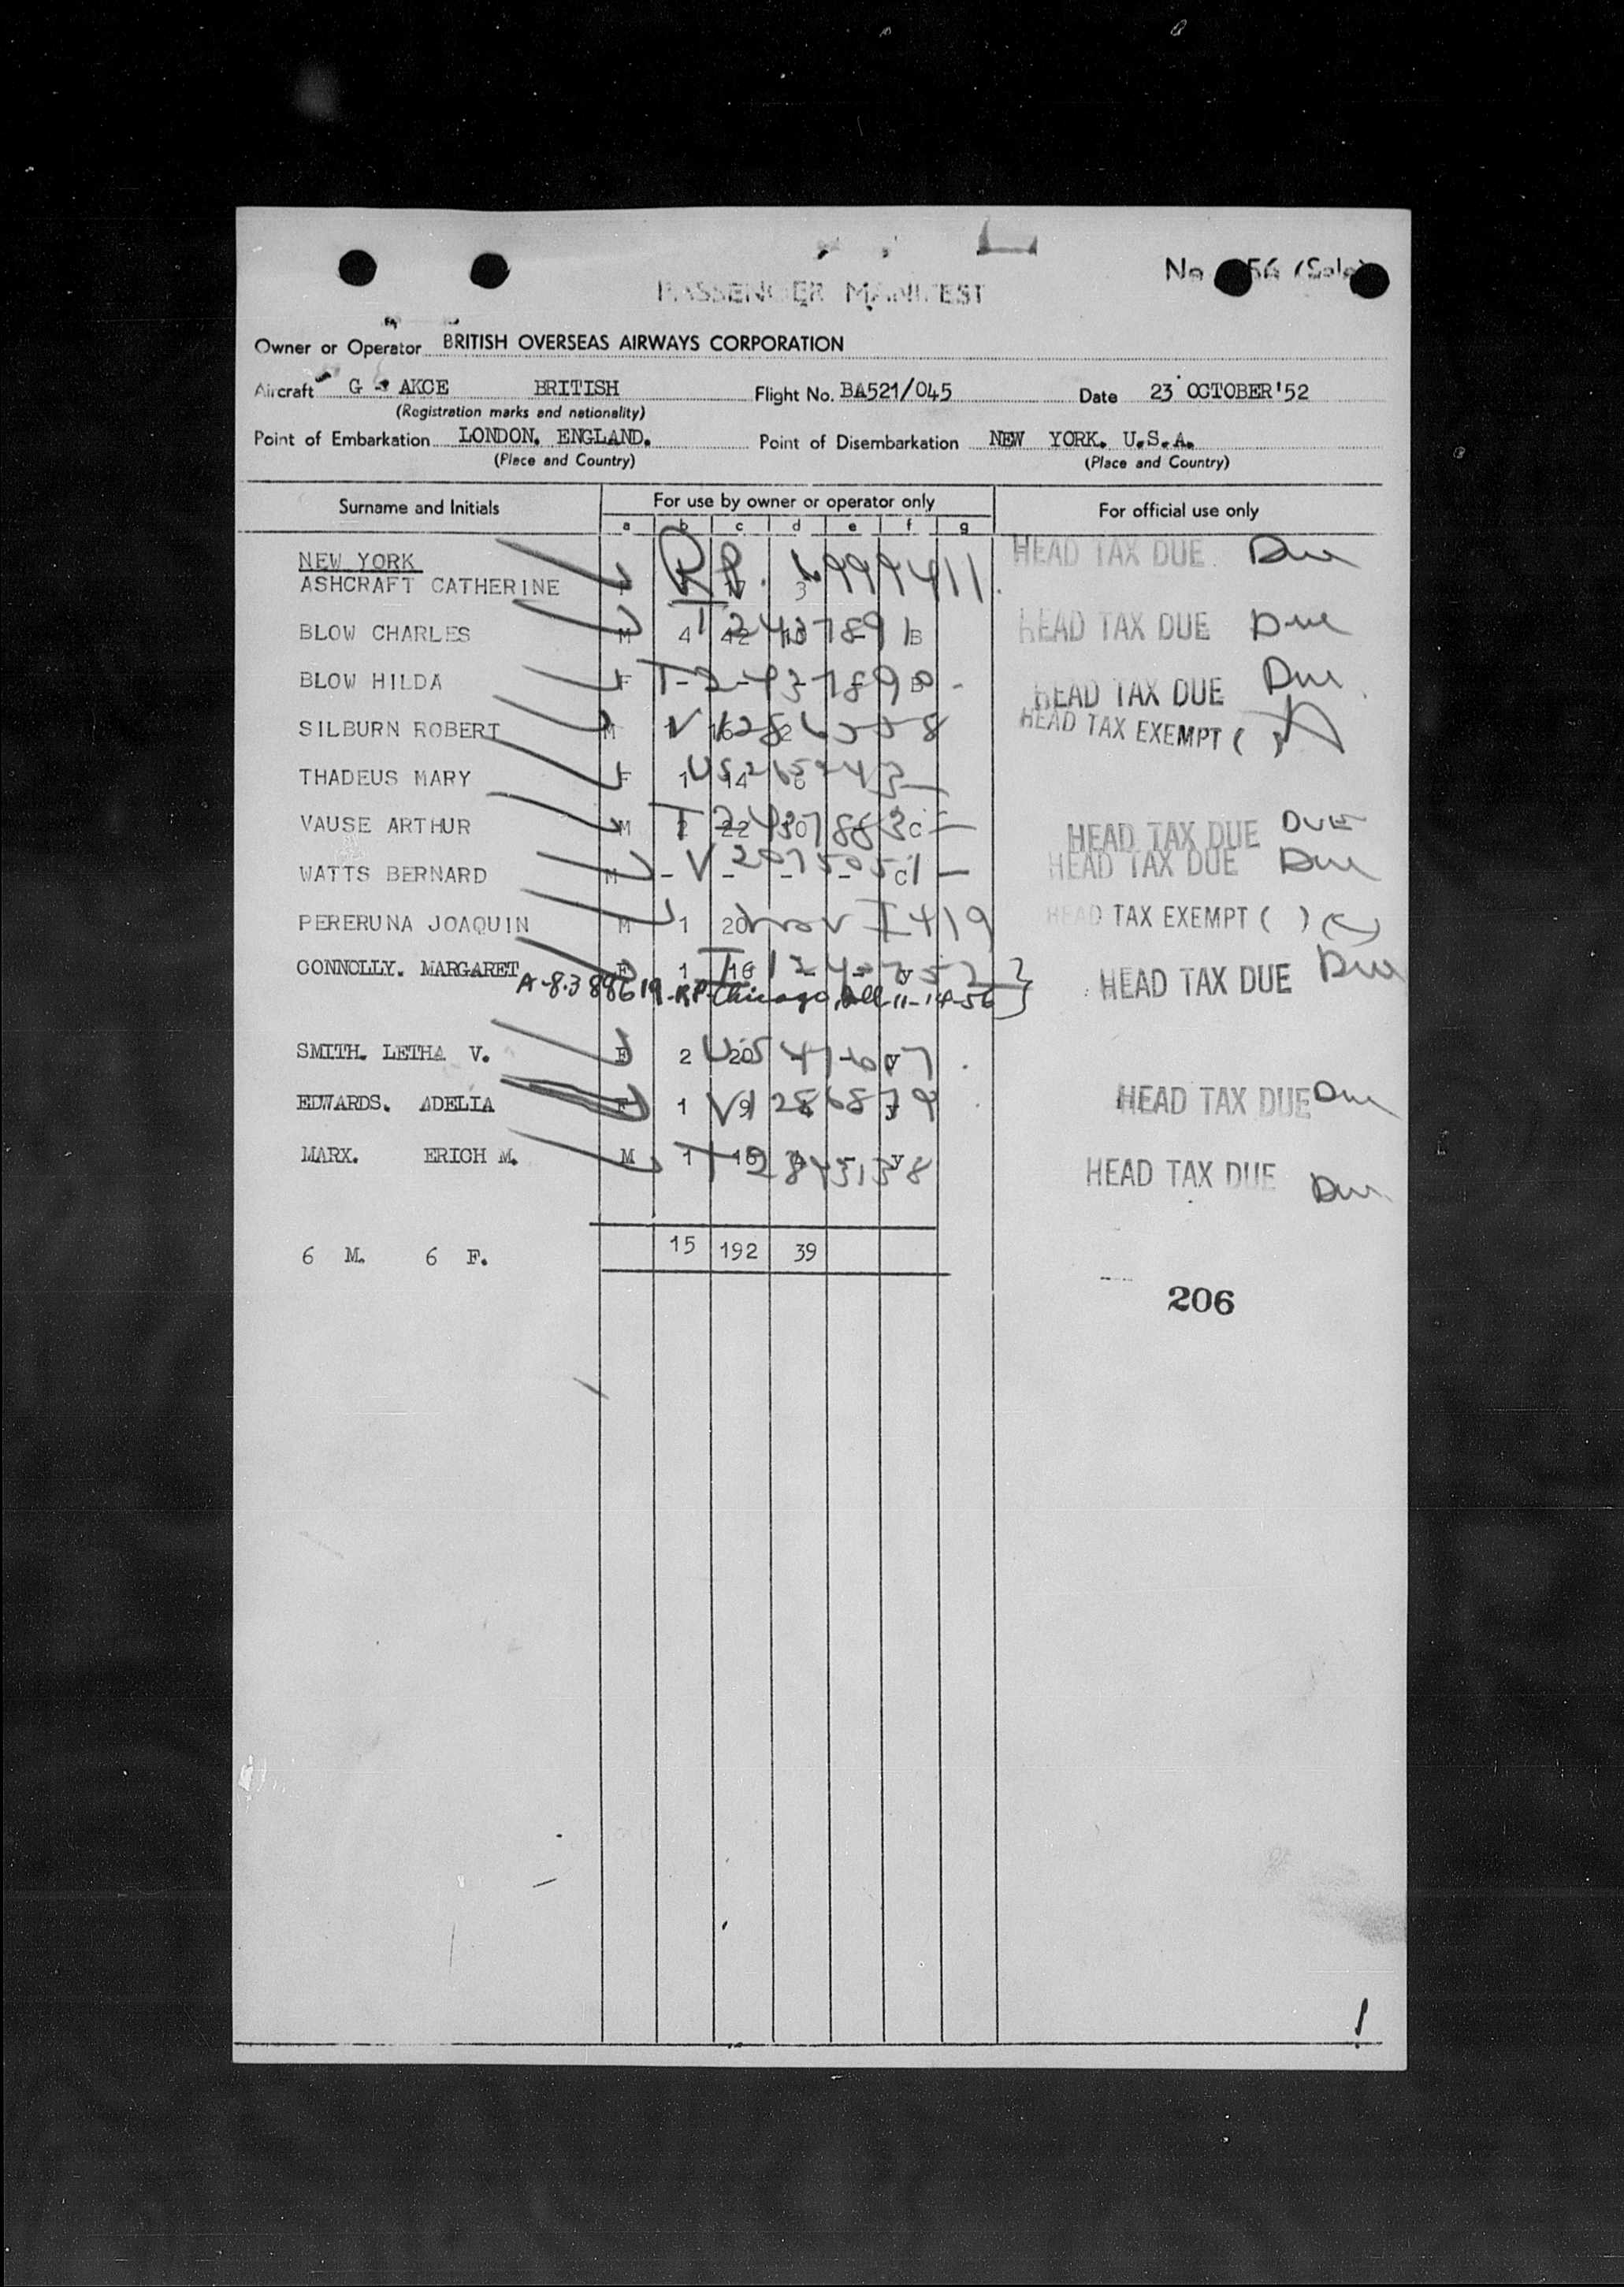 PASSENGER MANIFEST
Owner or Operator BRITISH OVERSEAS AIRWAYS CORPORATION
Aircraft G - AKCE BRITISH Flight No. BA521/045 Date 23 OCTOBER'52
(Registration marks and nationality)
Point of Embarkation LONDON. ENGLAND. Point of Disembarkation NEW YORK. U.S.A.
(Place and Country) (Place and Country)
Surname and Initials For use by owner or operator only For official use only
a b c d e f g
NEW YORK HEAD TAX DUE Due
ASHCRAFT CATHERINE
BLOW CHARLES M 4 42 HEAD TAX DUE Due
BLOW HILDA F T-2437890 HEAD TAX DUE Due
SILBURN ROBERT M HEAD TAX EXEMPT ( )
THADEUS MARY F 1 14
VAUSE ARTHUR M 22 C HEAD TAX DUE DUE
WATTS BERNARD M - V C HEAD TAX DUE Due
PERERUNA JOAQUIN M 1 20 I 419 HEAD TAX EXEMPT ( )
CONNOLLY. MARGARET F 1 HEAD TAX DUE Due
A-8388619-RP-Chicago, Ill 11-14-56
SMITH. LETHA V. F 2
EDWARDS. ADELIA F 1 9 HEAD TAX DUE Due
MARX. ERICH M. M 1 HEAD TAX DUE Due
6 M. 6 F. 15 192 39
206